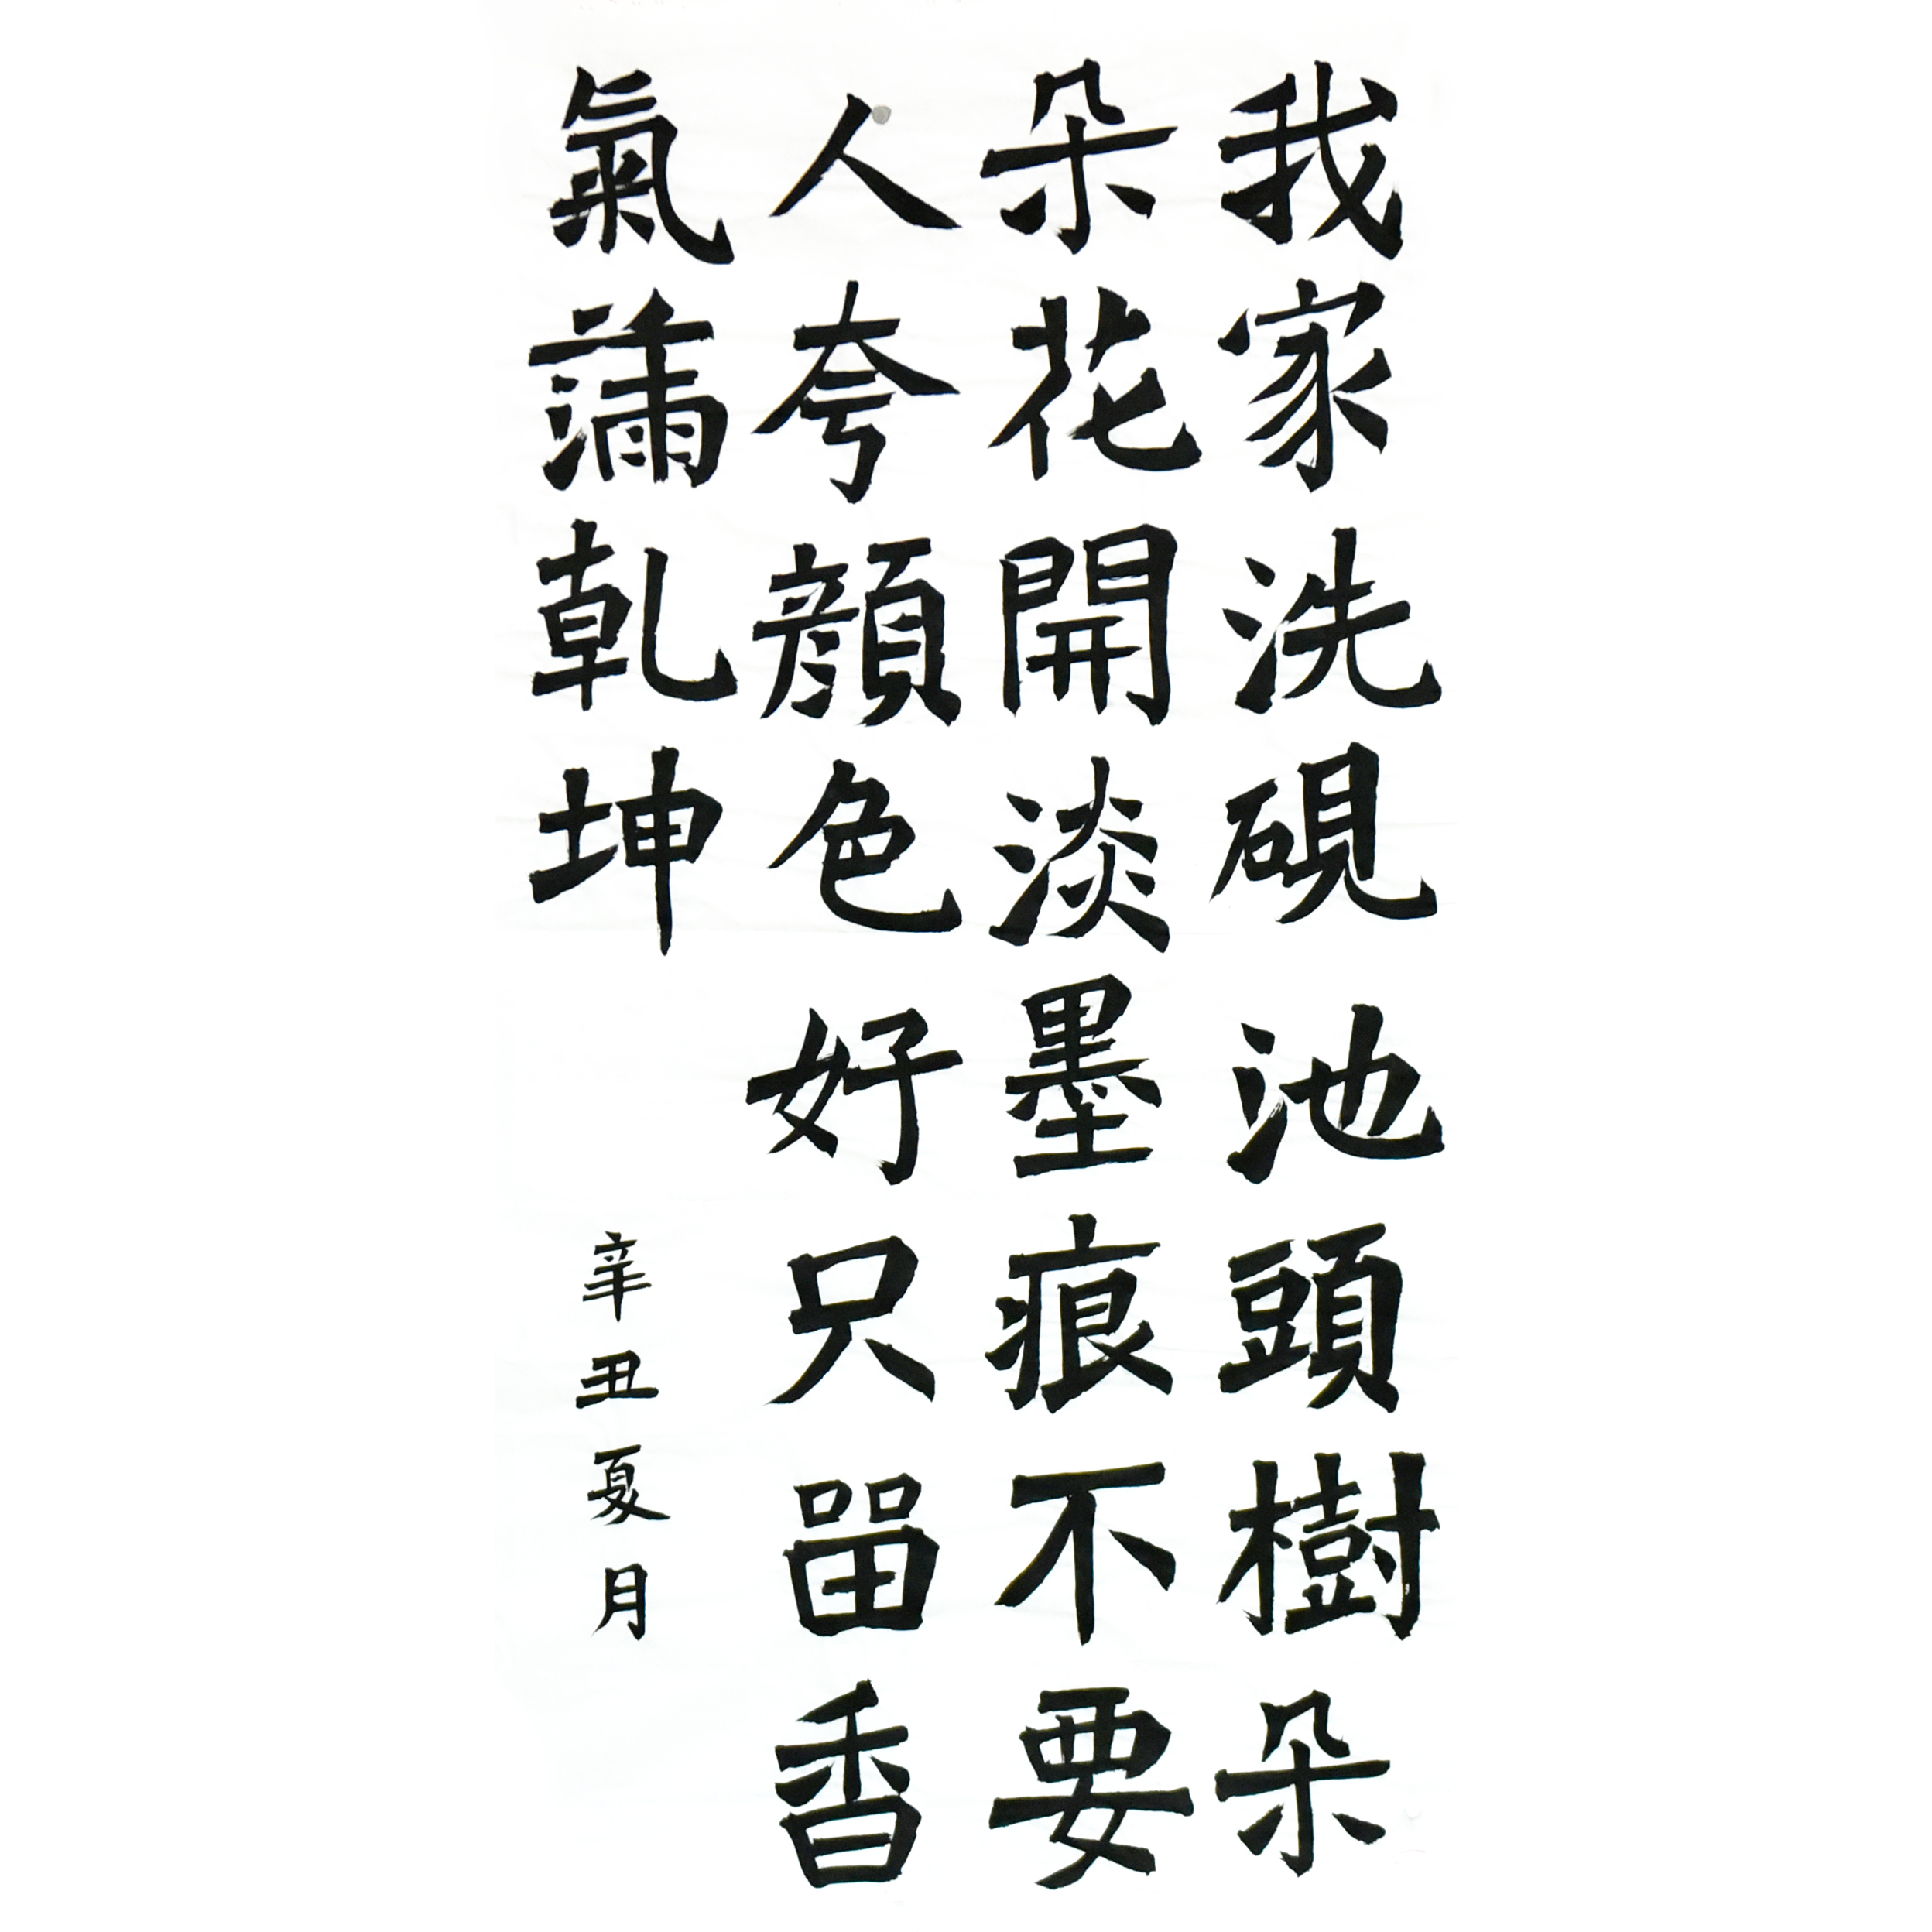 我家洗硯池頭樹朵
朵花開淡墨痕不要
人夸顏色好只畱香
氣滿乾坤
辛丑夏月